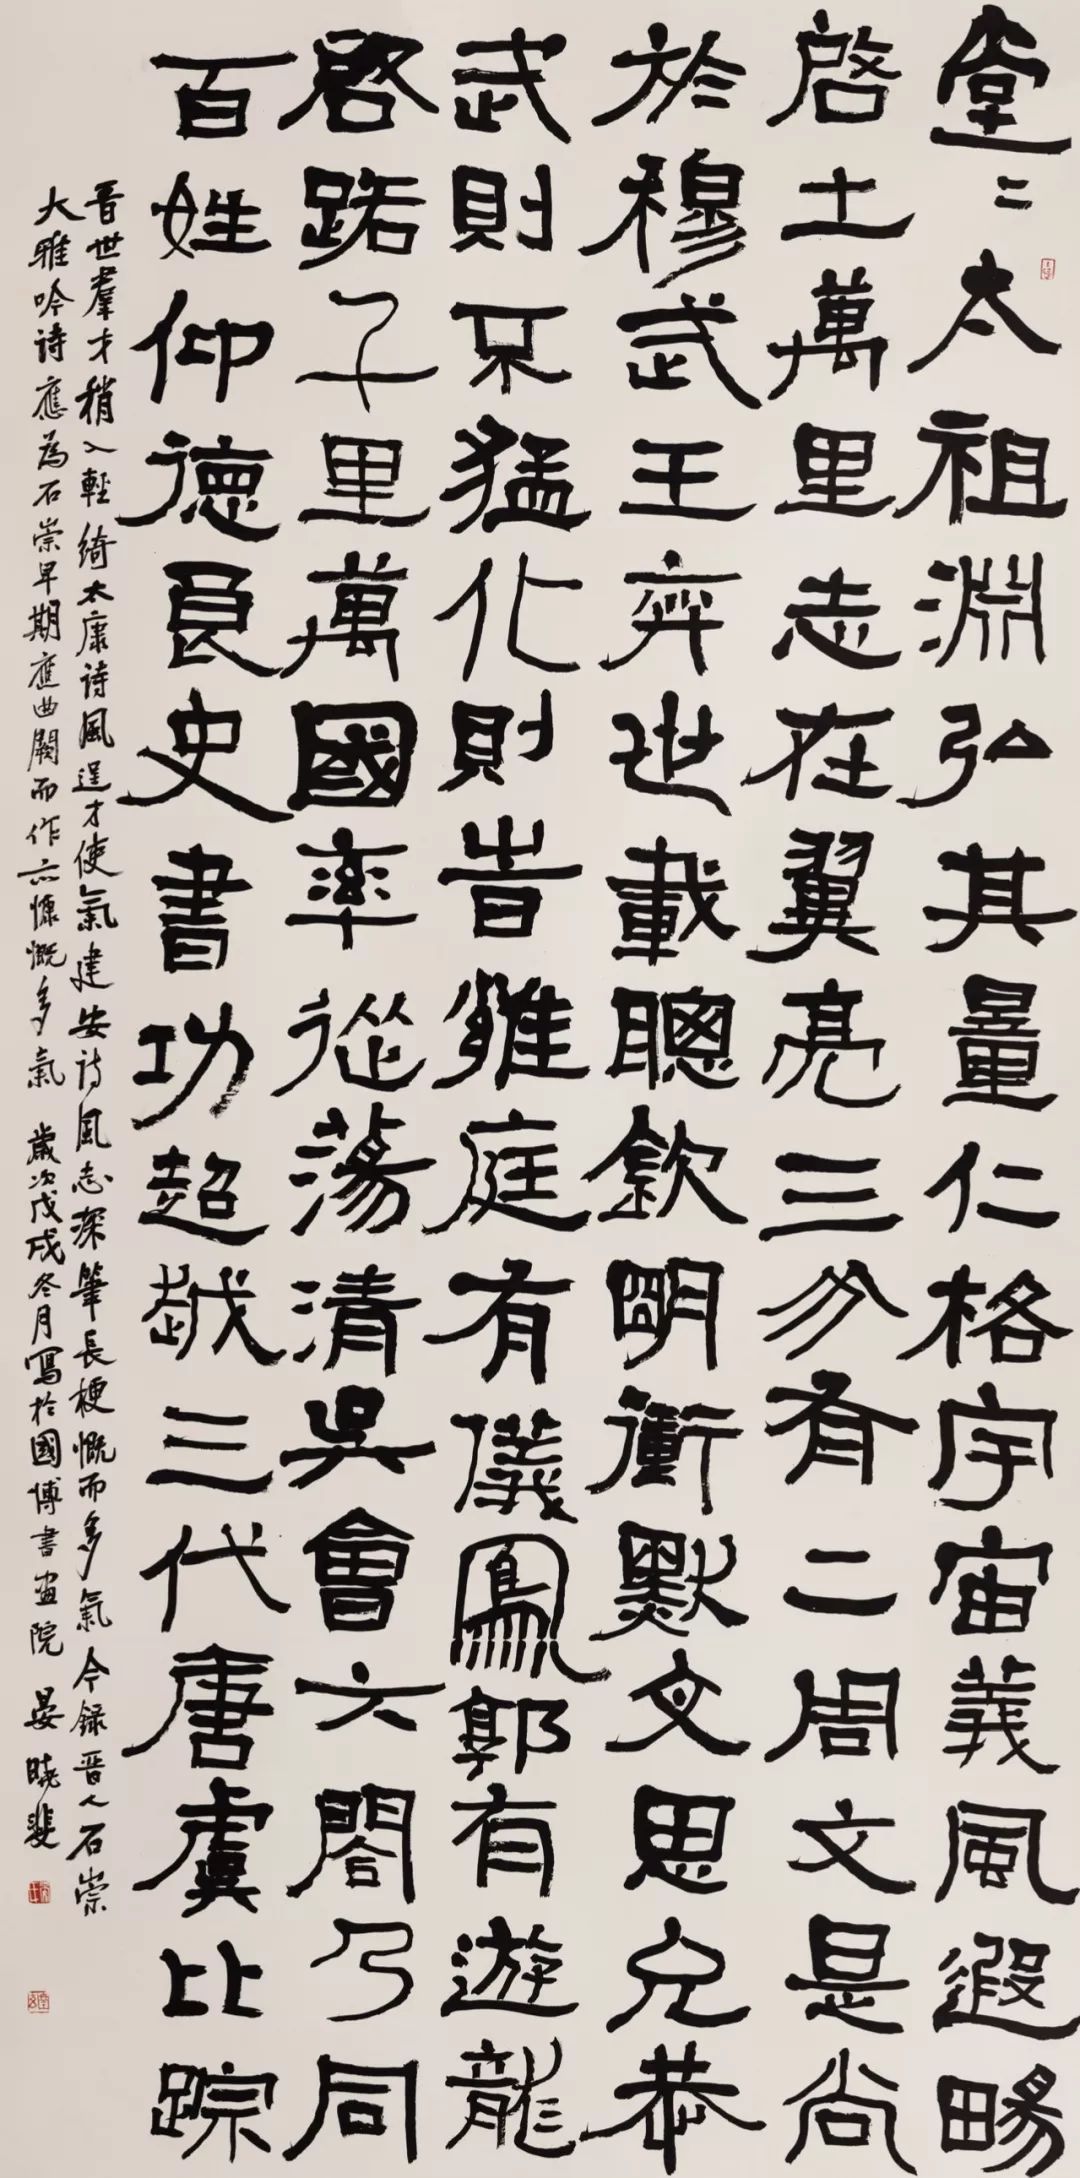 堂二太祖淵弘其量仁格宇宙義風遐暢
啓土萬里志在翼亮三分有二周文是尚
於穆武王奕世載聰欽明衝默文思允恭
武則不猛化則時雍庭有儀鳳郭有遊龍
啓路千里萬國率從蕩清吳會六閤乃同
百姓仰德良史書功超越三代唐虞比踪
晉世羣才稍入輕綺太康詩風逞才使氣建安詩風志深筆長梗慨而多氣今録晉人石崇
大雅吟詩應為石崇早期應曲闕而作亦慷慨多氣 歲次戊戌冬月寫於國博書畫院 晏曉斐